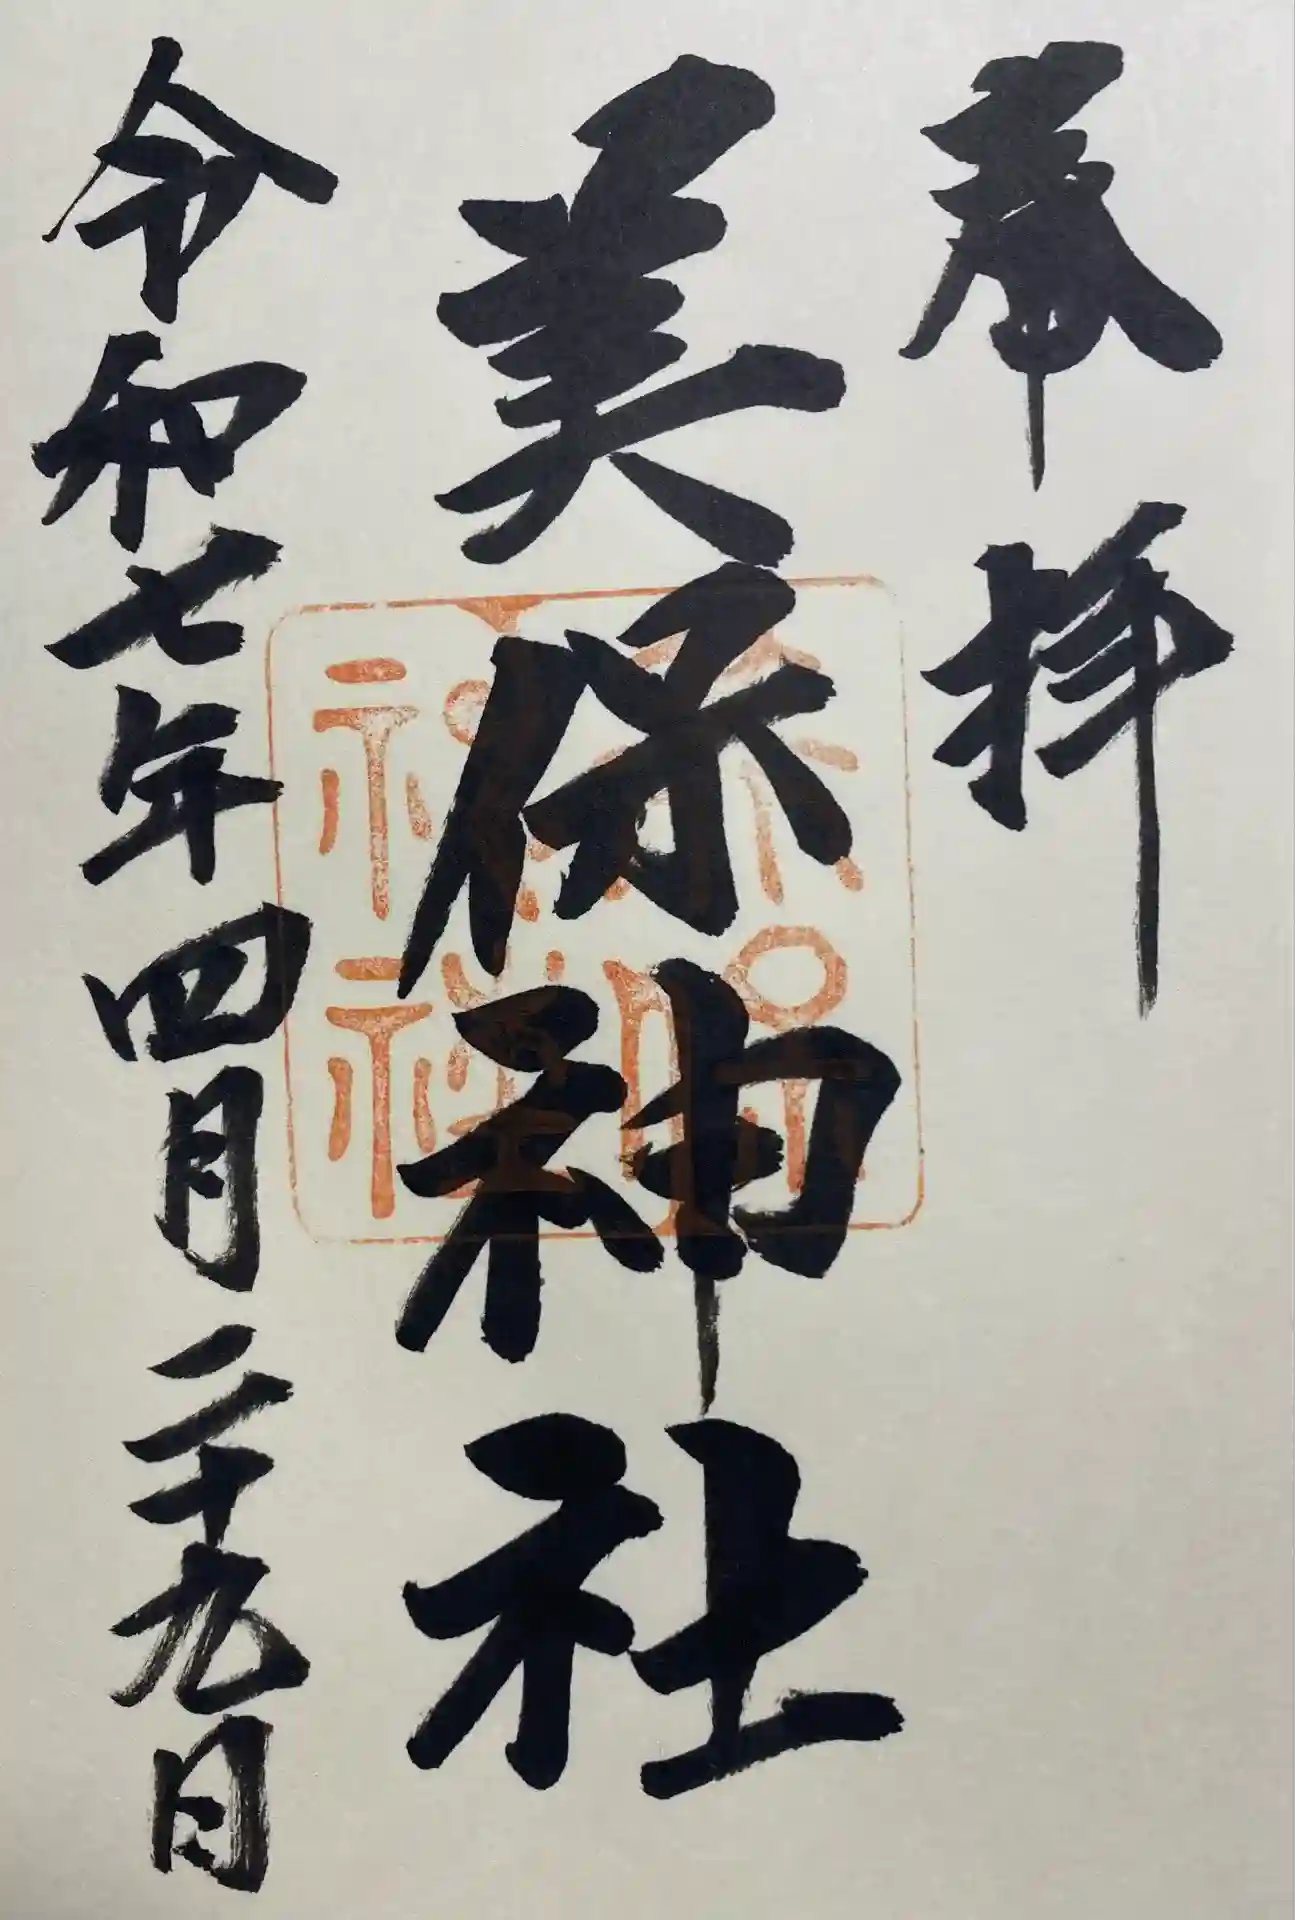 奉拝
美保神社
美保神社
令和七年四月二十九日